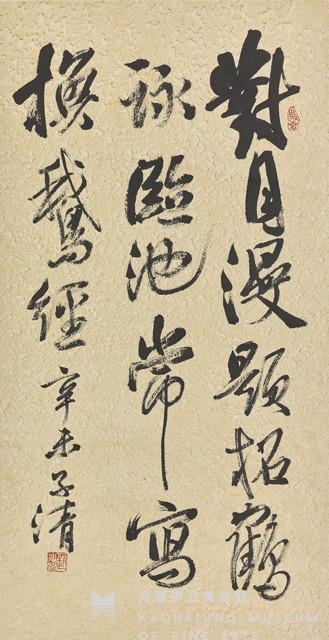 對月漫題招鶴
詠臨池常寫
換鵝經 辛未子清
高雄市立美術館
KAOHSIUNG MUSEUM
OF FINE ARTS